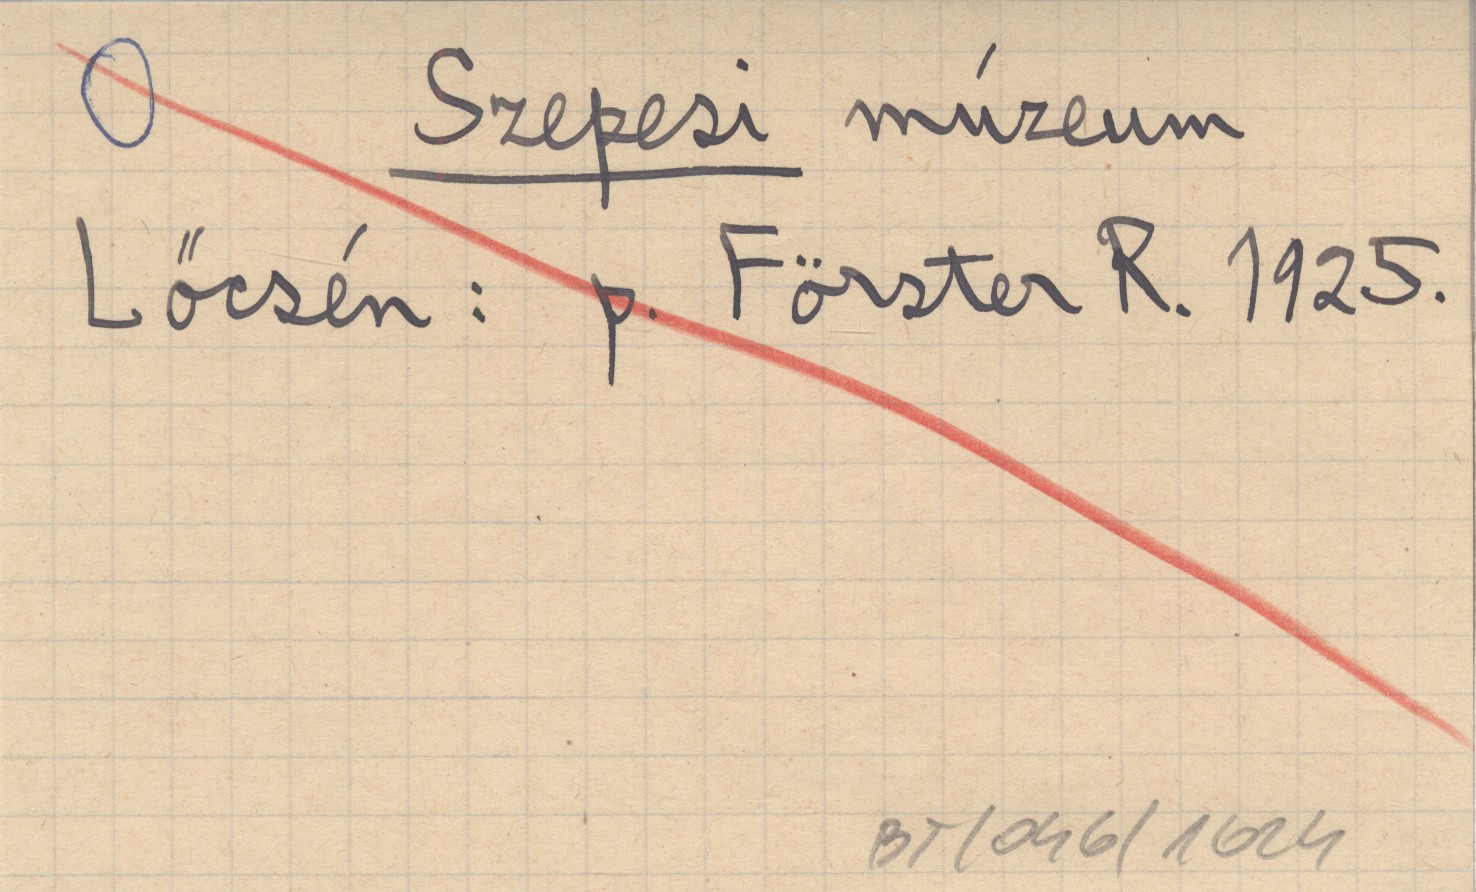 O Szepesi múzeum
Lőcsén: p. Förster R. 1925.
BT/046/1624